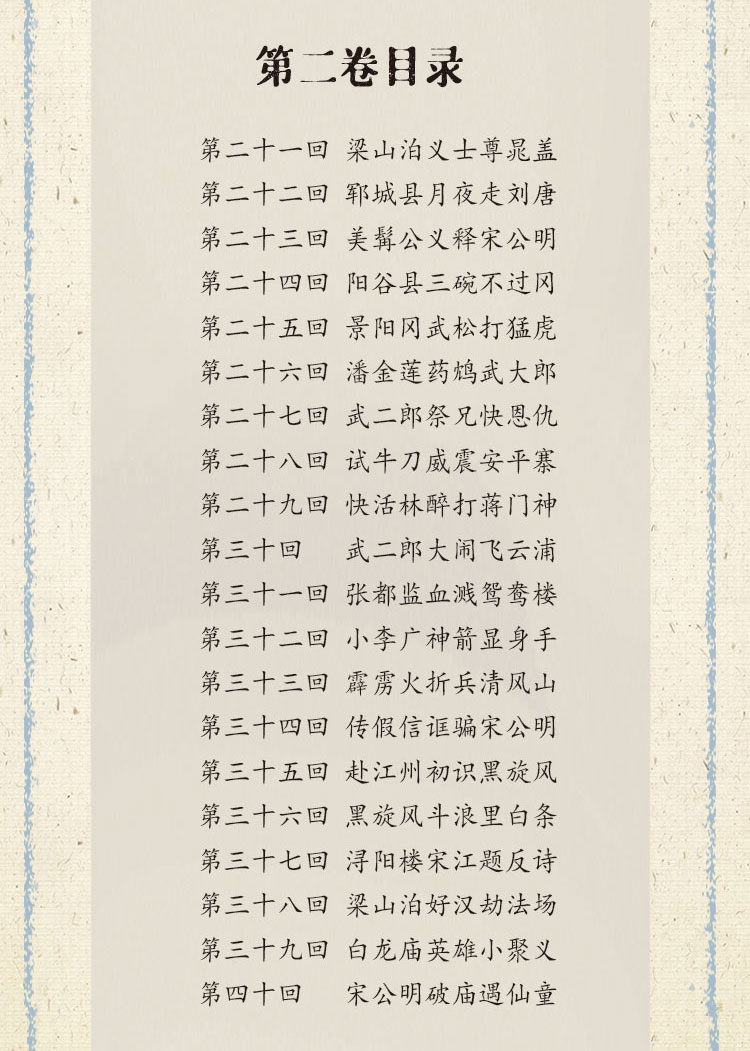 第二卷目录
第二十一回 梁山泊义士尊晁盖
第二十二回 郓城县月夜走刘唐
第二十三回 美髯公义释宋公明
第二十四回 阳谷县三碗不过冈
第二十五回 景阳冈武松打猛虎
第二十六回 潘金莲药鸩武大郎
第二十七回 武二郎祭兄快恩仇
第二十八回 试牛刀威震安平寨
第二十九回 快活林醉打蒋门神
第三十回 武二郎大闹飞云浦
第三十一回 张都监血溅鸳鸯楼
第三十二回 小李广神箭显身手
第三十三回 霹雳火折兵清风山
第三十四回 传假信诓骗宋公明
第三十五回 赴江州初识黑旋风
第三十六回 黑旋风斗浪里白条
第三十七回 浔阳楼宋江题反诗
第三十八回 梁山泊好汉劫法场
第三十九回 白龙庙英雄小聚义
第四十回 宋公明破庙遇仙童